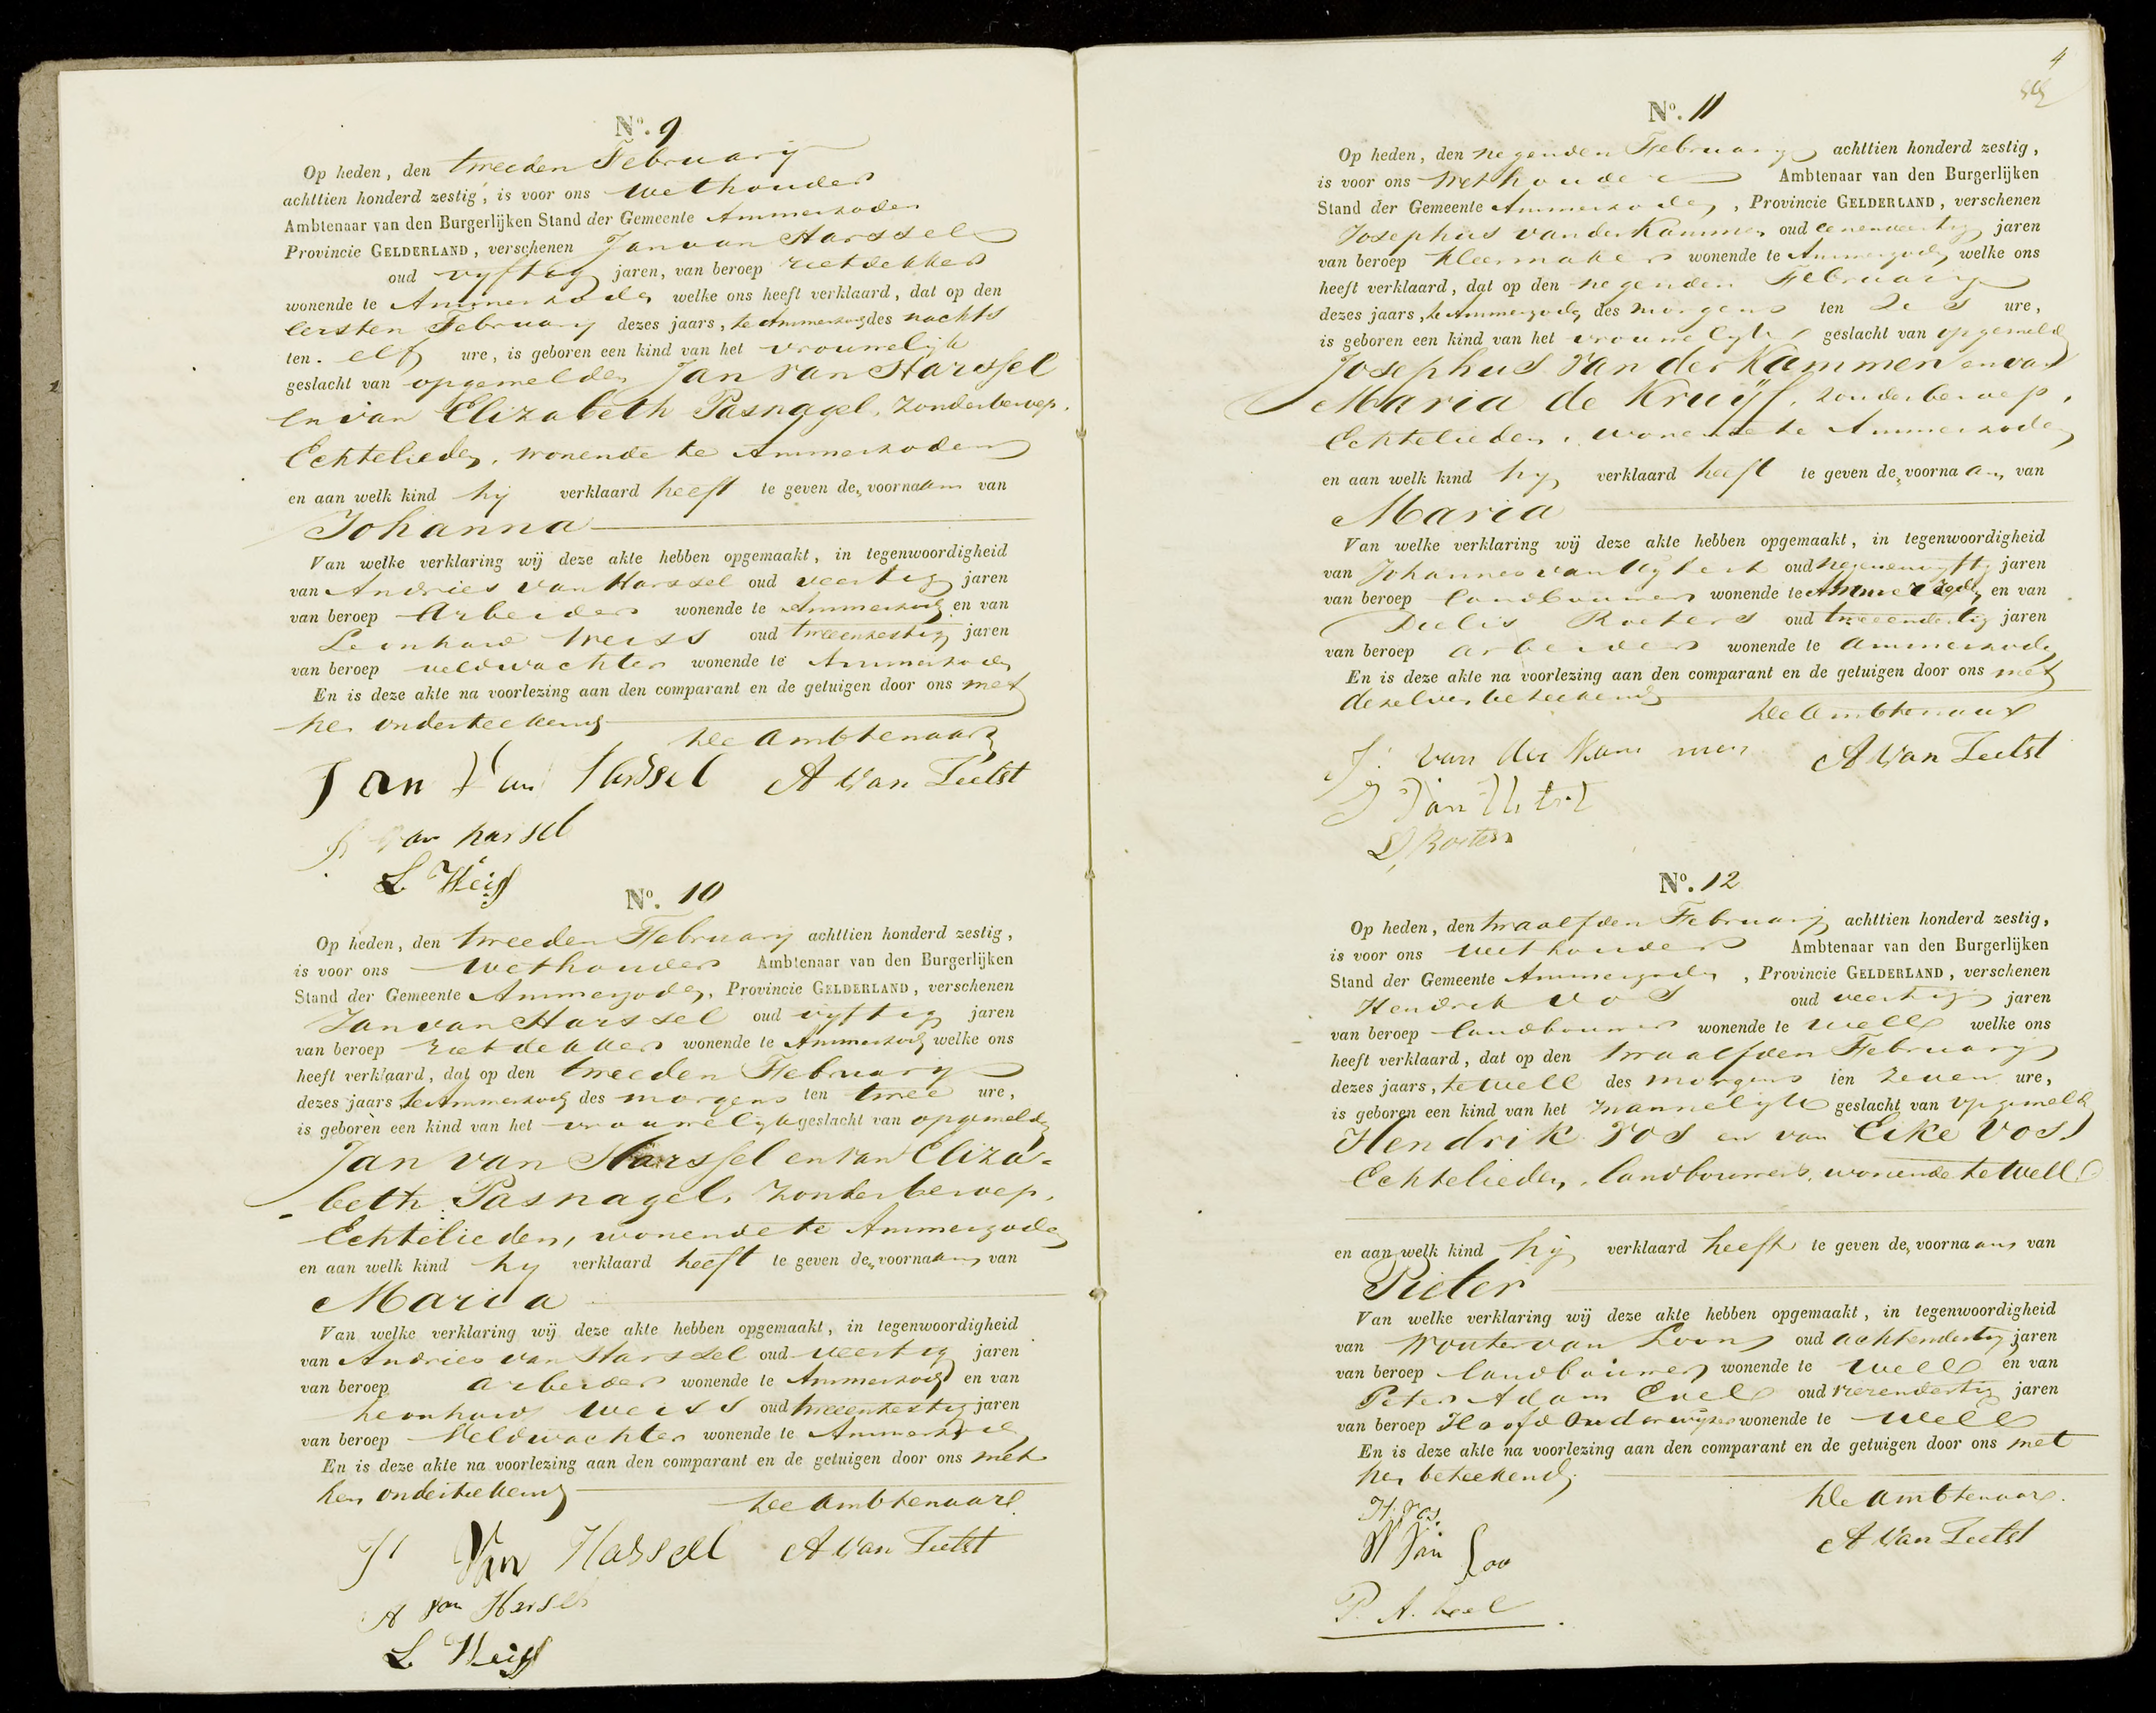 No. 9
Op heden, den tweeden February
achttien honderd zestig, is voor ons Wethouder
Ambtenaar van den Burgerlijken Stand der Gemeente Ammerzoden
Provincie GELDERLAND, verschenen Jan van Harssel
oud vyftig jaren, van beroep rietdekker
wonende te Ammerzoden welke ons heeft verklaard, dat op den
eersten February dezes jaars, te Ammerzoden des nachts
ten elf ure, is geboren een kind van het vrouwelijk
geslacht van opgemelden Jan van Harssel
en van Elizabeth Pasnagel, zonder beroep,
Echtelieden, wonende te Ammerzoden
en aan welk kind hij verklaard heeft te geven den voornaam van
Johanna
Van welke verklaring wij deze akte hebben opgemaakt, in tegenwoordigheid
van Andries van Harssel oud veertig jaren
van beroep Arbeider wonende te Ammerzoden en van
Leonhard Weiss oud tweeenzestig jaren
van beroep veldwachter wonende te Ammerzoden
En is deze akte na voorlezing aan den comparant en de getuigen door ons met
hen onderteekend
De Ambtenaar
Jan van Harssel A van Teelst
van harsel
L. Weiss
No. 10
Op heden, den tweeden February achttien honderd zestig,
is voor ons Wethouder Ambtenaar van den Burgerlijken
Stand der Gemeente Ammerzoden, Provincie GELDERLAND, verschenen
Jan van Harssel oud vyftig jaren
van beroep rietdekker wonende te Ammerzoden welke ons
heeft verklaard, dat op den tweeden February
dezes jaars, te Ammerzoden des morgens ten twee ure,
is geboren een kind van het vrouwelyk geslacht van opgemelden
Jan van Harssel en van Eliza=
beth Pasnagel, zonder beroep,
Echtelieden, wonende te Ammerzoden
en aan welk kind hy verklaard heeft te geven den voornaam van
Maria
Van welke verklaring wij deze akte hebben opgemaakt, in tegenwoordigheid
van Andries van Harssel oud veertig jaren
van beroep arbeider wonende te Ammerzoden en van
Leonhard Weiss oud tweeenzestig jaren
van beroep Veldwachter wonende te Ammerzoden
En is deze akte na voorlezing aan den comparant en de getuigen door ons met
hen onderteekend
De Ambtenaar
J Van Hassell A van Teelst
A van Harsel
L. Weiss
4
No. 11
Op heden, den negenden February achttien honderd zestig,
is voor ons Wethouder Ambtenaar van den Burgerlijken
Stand der Gemeente Ammerzoden, Provincie GELDERLAND, verschenen
Josephus van der Kammen oud eenenveertig jaren
van beroep kleermaker wonende te Ammerzoden welke ons
heeft verklaard, dat op den negenden February
dezes jaars, te Ammerzoden des morgens ten zes ure,
is geboren een kind van het vrouwelyk geslacht van opgemelden
Josephus van der Kammen en van
Maria de Kruÿf, zonder beroep,
Echtelieden, wonende te Ammerzoden
en aan welk kind hy verklaard heeft te geven den voornaam van
Maria
Van welke verklaring wij deze akte hebben opgemaakt, in tegenwoordigheid
van Johannes van oud negenenvyftig jaren
van beroep landbouwer wonende te Ammerzoden en van
Dielis Roeters oud tweeendertig jaren
van beroep arbeider wonende te Ammerzoden
En is deze akte na voorlezing aan den comparant en de getuigen door ons met
dezelven beteekend
De Ambtenaar
J. van der Kammen A van Teelst
J van
D, Roeters
No. 12
Op heden, den twaalfden February achttien honderd zestig,
is voor ons Wethouder Ambtenaar van den Burgerlijken
Stand der Gemeente Ammerzoden, Provincie GELDERLAND, verschenen
Hendrik Vos oud veertig jaren
van beroep landbouwer wonende te Well welke ons
heeft verklaard, dat op den twaalfden February
dezes jaars, te Well des morgens ten zeven ure,
is geboren een kind van het mannelyk geslacht van opgemelden
Hendrik Vos en van Eike Vos,
Echtelieden, landbouwers, wonende te Well
en aan welk kind hij verklaard heeft te geven den voornaam van
Pieter
Van welke verklaring wij deze akte hebben opgemaakt, in tegenwoordigheid
van Wouter van Loon oud achtendertig jaren
van beroep landbouwer wonende te Well en van
Peter Adam oud jaren
van beroep Hoofd Onderwijzer wonende te Well
En is deze akte na voorlezing aan den comparant en de getuigen door ons met
hen beteekend
De Ambtenaar.
H. Vos.
W van Loo A van Teelst
P. A.